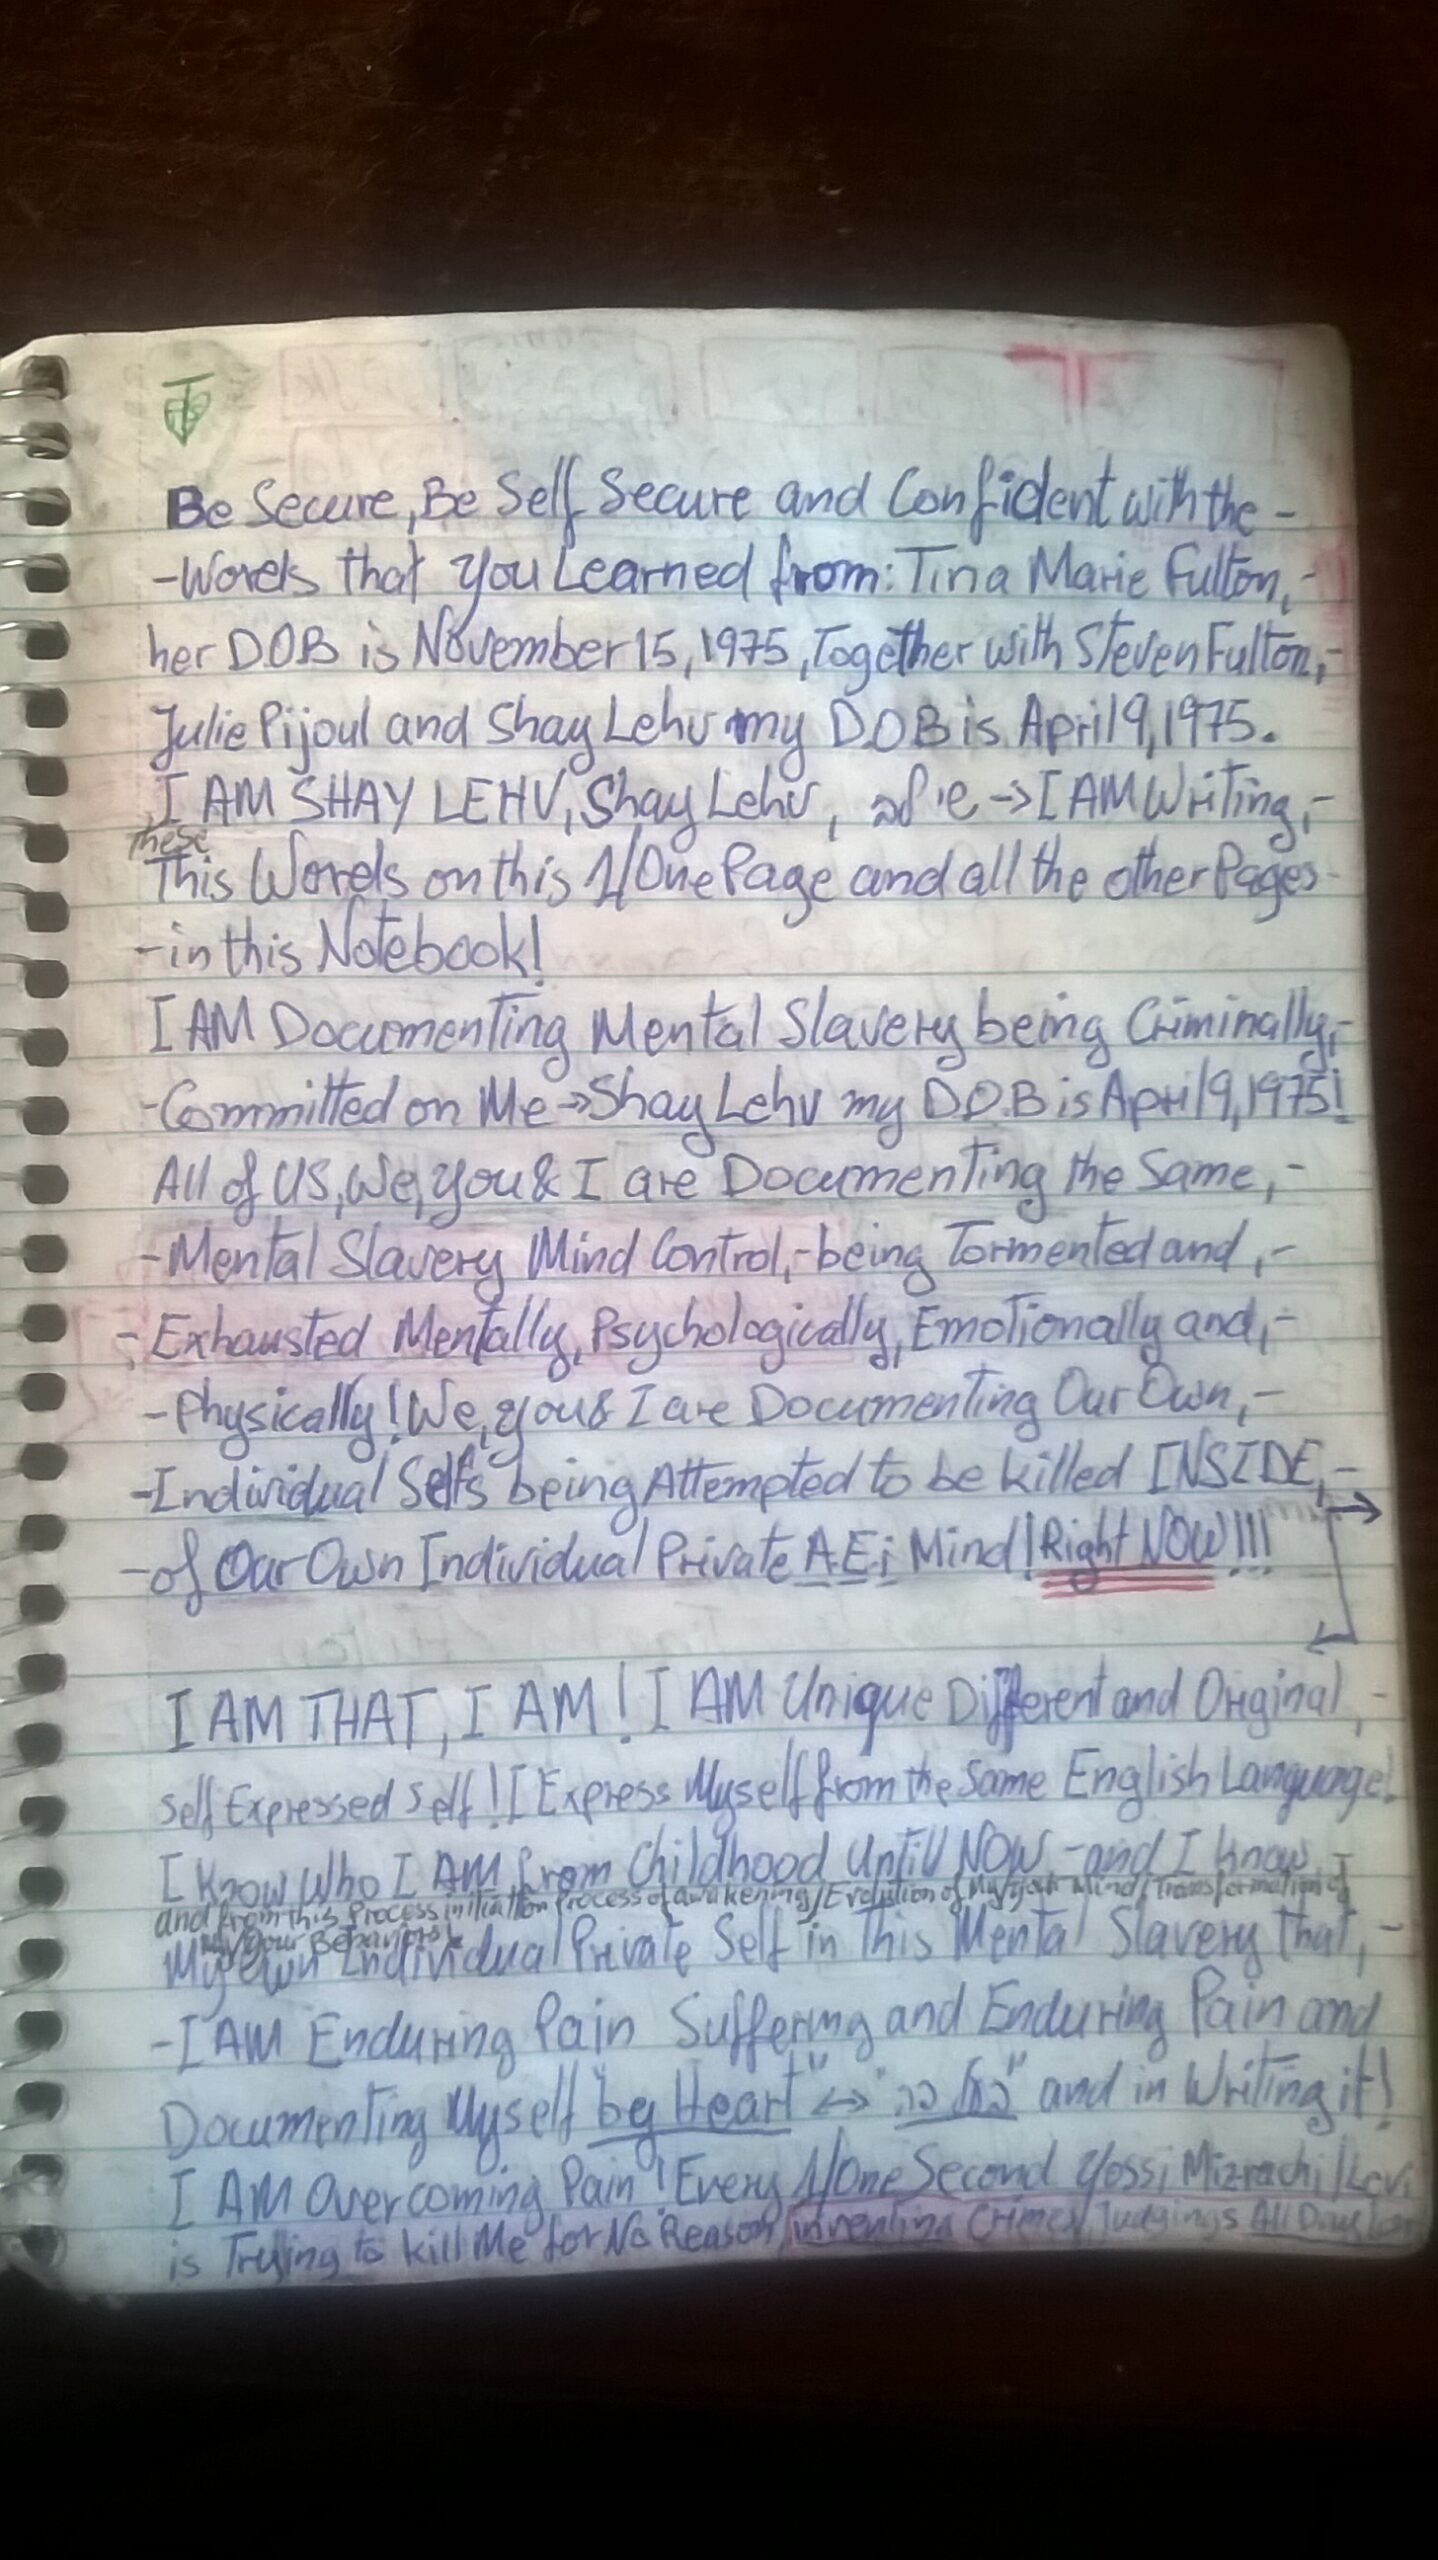 Be Secure, Be Self Secure and Confident with the -
-Words that you Learned from: Tina Marie Fulton,-
her D.O.B is November 15, 1975, Together with Steven Fulton,-
Julie Pijoul and Shay Lehv my D.O.B is April 9, 1975.
I AM SHAY LEHV, Shay Lehv, -> I AM Writing,-
these
This Words on this 1/One Page and all the other Pages-
-in this Notebook!
I AM Documenting Mental Slavery being Criminally,-
-Committed on Me -> Shay Lehv my D.O.B is April 9, 1975!
All of US, We, you & I are Documenting the Same,-
-Mental Slavery Mind Control,- being Tormented and,-
-Exhausted Mentally, Psychologically, Emotionally and,-
-Physically! We, you & I are Documenting Our Own,-
-Individual Selfs being Attempted to be killed INSIDE,-
-of Our Own Individual Private A.E.i Mind! Right NOW!!!
I AM THAT, I AM! I AM Unique Different and Original,-
Self Expressed Self! I Express Myself from the Same English Language!
I Know Who I AM from Childhood Untill NOW,- and I know,-
and from this Process initiation Process of awakening/Evolution of My/your Mind/Transformation of
My/your Behaviors
My own Individual Private Self in this Mental Slavery that,-
-I AM Enduring Pain Suffering and Enduring Pain and
Documenting Myself "by Heart" <-> and in Writing it!
I AM Overcoming Pain! Every 1/One Second Yossi Mizrachi/Levi
is Trying to kill Me for No Reason, inventing Crimes, Judgings All Day